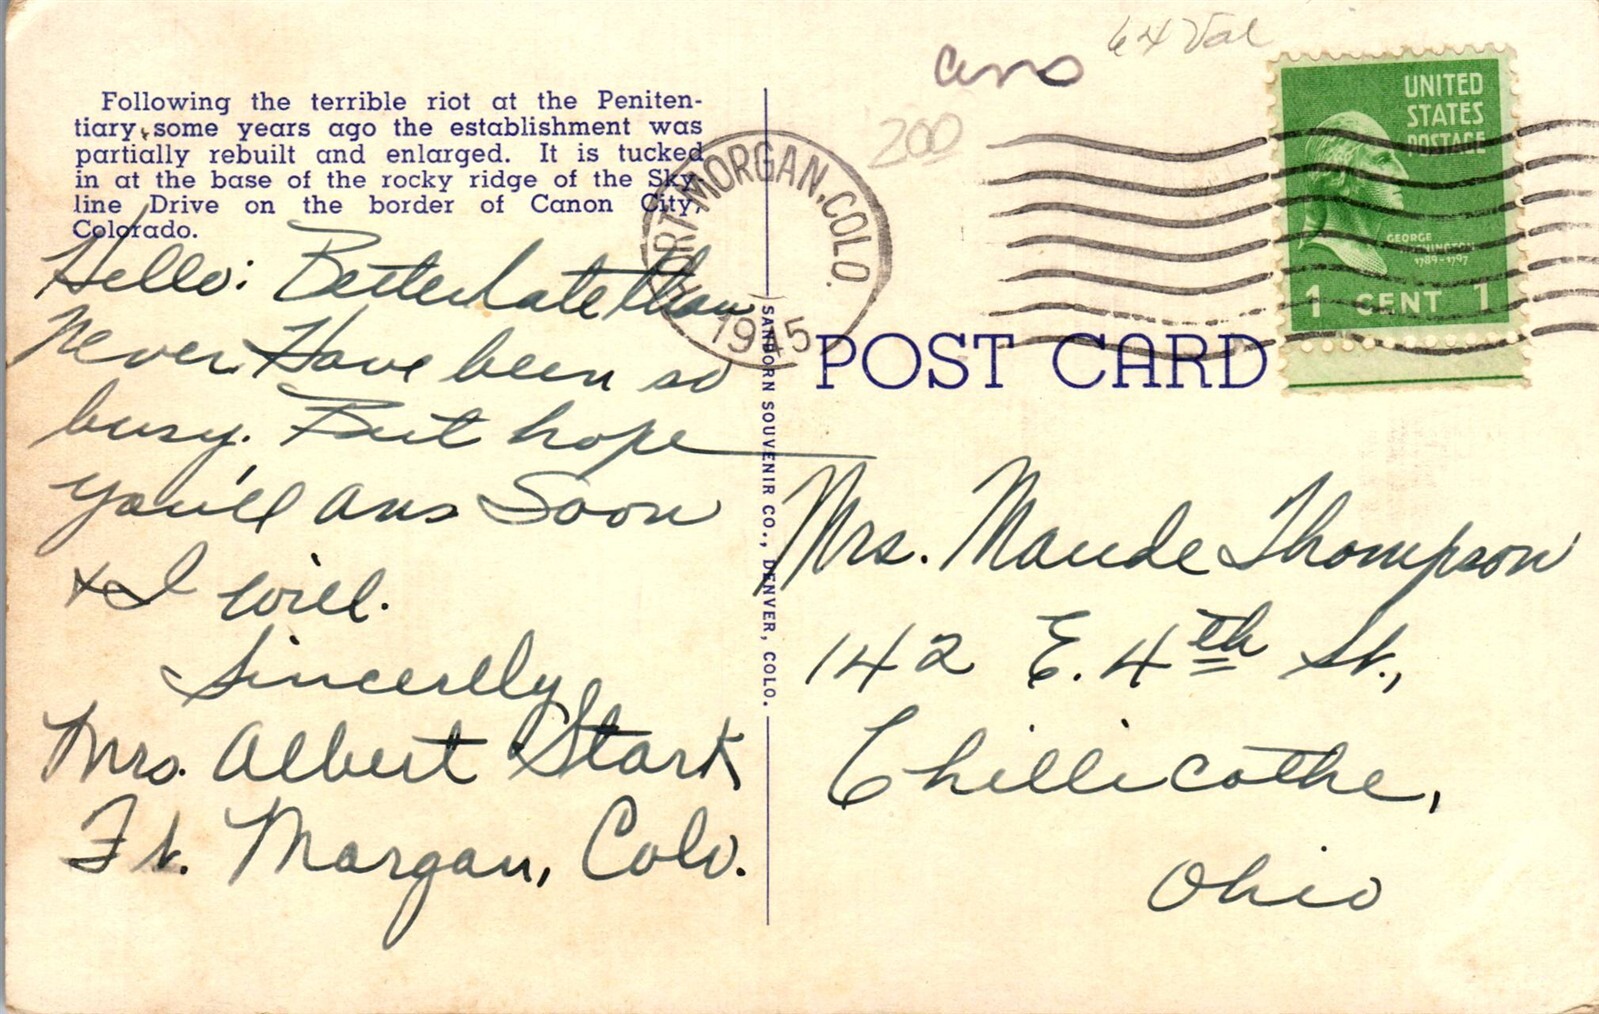 Following the terrible riot at the Peniten-
tiary some years ago the establishment was
partially rebuilt and enlarged. It is tucked
in at the base of the rocky ridge of the Sky-
line Drive on the border of Canon City,
Colorado.
Hello: Better late than
Never. Have been so
busy. But hope
you'll ans soon
& I will.
Sincerelly
Mrs. Albert Stark
Ft. Morgan, Colo.
SANBORN SOUVENIR CO., DENVER, COLO.
ans
64 Val
200
FORT MORGAN, COLO.
1945
UNITED
STATES
POSTAGE
GEORGE
WASHINGTON
1789-1797
1 CENT 1
POST CARD
Mrs. Maude Thompson
142 E. 4th St.,
Chillicothe,
Ohio